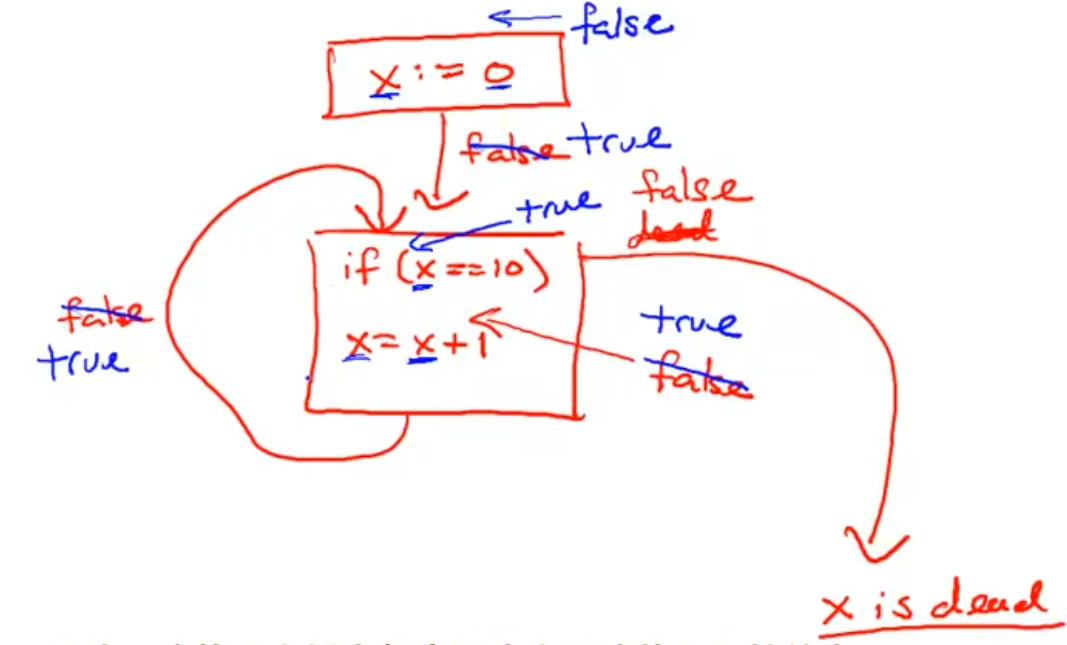 false
x := 0
false true
true
false
dead
if (x==10)
x=x+1
false
true
true
false
x is dead